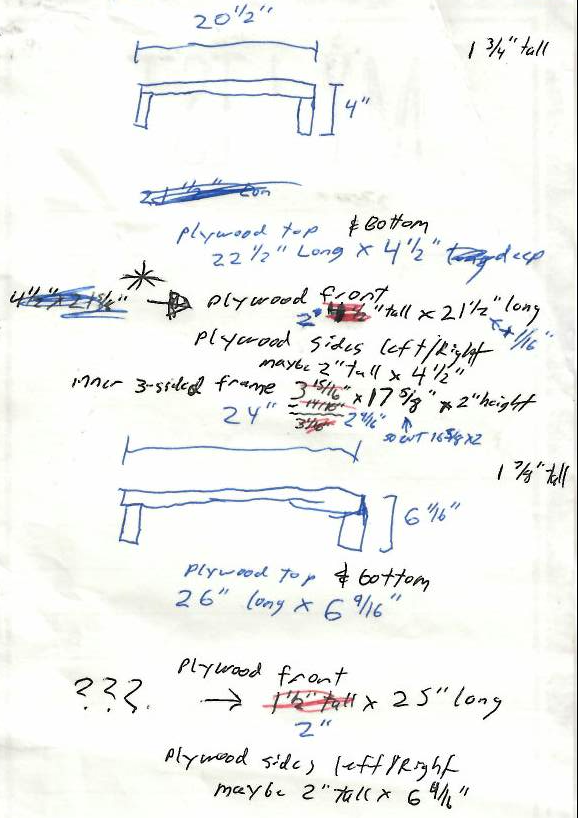 20 1/2"
1 3/4" tall
4"
21 1/2" Lon
plywood top & Bottom
22 1/2" Long x 4 1/2" deep
4 1/2" x 21 5/8" → plywood front
2" "tall x 21 1/2" long
+ 1/16"
plywood sides left/Right
maybe 2" tall x 4 1/2"
inner 3-sided frame 3 15/16" x 17 5/8" x 2" height
24" 3 1/16" 2 9/16" so cut 16 5/8 x 2
1 7/8" tall
6 1/16"
plywood top & bottom
26" long x 6 9/16"
plywood front
??? → 1 1/2" tall x 25" long
2"
plywood sides left/Right
maybe 2" tall x 6 9/16"